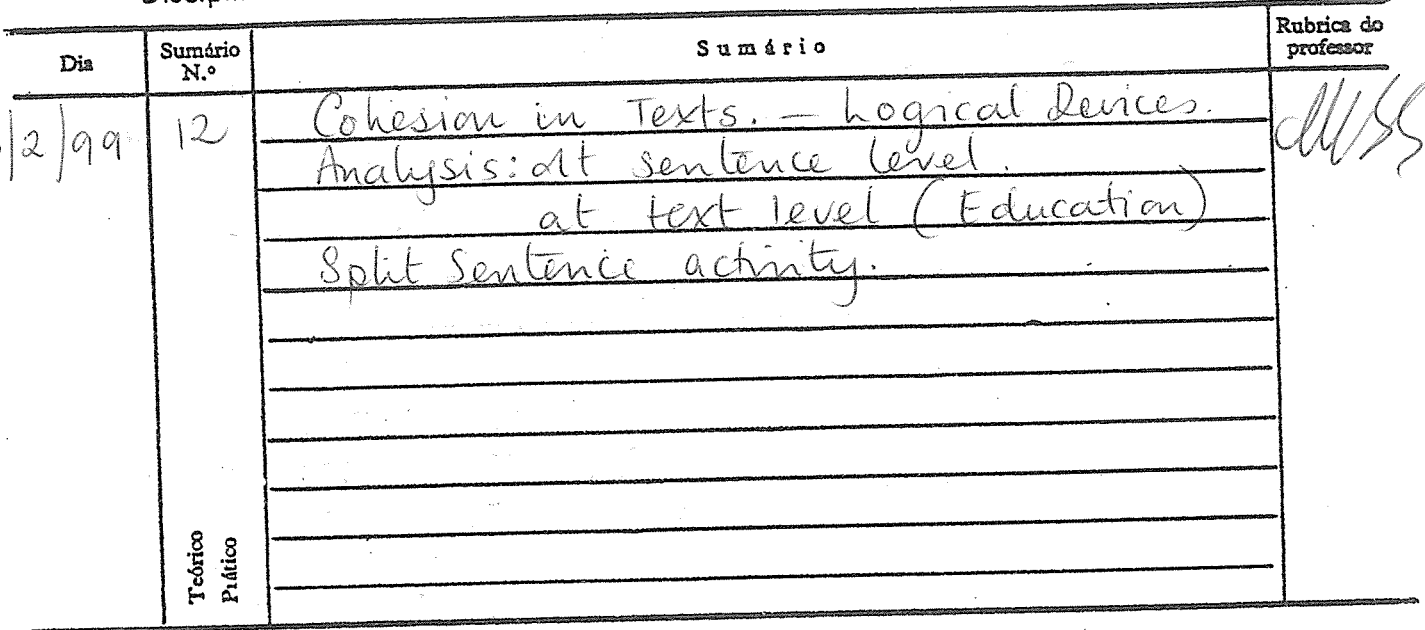 Dia
Sumário N.º
Sumário
Rubrica do professor
/2/99
12
Cohesion in Texts. – Logical Devices.
Analysis: at sentence level.
at text level (Education)
Split Sentence activity.
Teórico
Prático